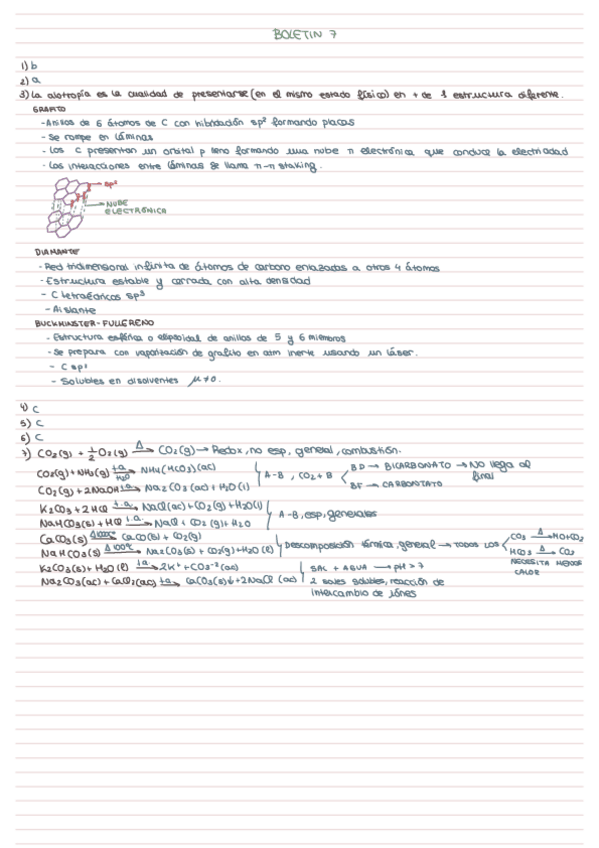 BOLETIN 7
1) b
2) a
3) La alotropía es la cualidad de presentarse (en el mismo estado físico) en + de 1 estructura diferente.
GRAFITO
- Anillos de 6 átomos de C con hibridación sp² formando placas
- Se rompe en láminas
- Los C presentan un orbital p lleno formando una nube π electrónica que conduce la electricidad
- Las interacciones entre láminas se llama π-π staking.
sp²
NUBE
ELECTRÓNICA
DIAMANTE
- Red tridimensional infinita de átomos de carbono enlazadas a otros 4 átomos
- Estructura estable y cerrada con alta densidad
- C tetraédricos sp³
- Aislante
BUCKMINSTER-FULLERENO
- Estructura esférica o elipsoidal de anillos de 5 y 6 miembros
- Se prepara con vaporización de grafito en atm inerte usando un láser.
- C sp²
- Solubles en disolventes μ≠0.
4) C
5) C
6) C
7) CO₂(g) + ½O₂(g) —Δ→ CO₂(g) → Redox, no esp, general, combustión.
CO₂(g) + NH₃(g) —t.a/H₂O→ NH₄(HCO₃)(ac)
CO₂(g) + 2NaOH —t.a→ Na₂CO₃(ac) + H₂O(l)
A-B, CO₂+B
BD → BICARBONATO → No llega al final
BF → CARBONTATO
K₂CO₃ + 2HCl —t.a→ NaCl(ac) + CO₂(g) + H₂O(l)
NaHCO₃(s) + HCl —t.a→ NaCl + CO₂(g) + H₂O
A-B, esp, generales
CaCO₃(s) —Δ1000°C→ CaCO(s) + CO₂(g)
NaHCO₃(s) —Δ100°C→ Na₂CO₃(s) + CO₂(g) + H₂O(l)
Descomposición térmica, general → TODOS LOS
CO₃ —Δ→ MO+CO₂
HCO₃ —Δ→ CO₂
NECESITA MENOS
CALOR
K₂CO₃(s) + H₂O(l) —t.a→ 2K⁺ + CO₃⁻²(ac)
SAL + AGUA → pH > 7
Na₂CO₃(ac) + CaCl₂(ac) —t.a→ CaCO₃(s)↓ + 2NaCl(ac)
2 sales solubles, reacción de
intercambio de iónes